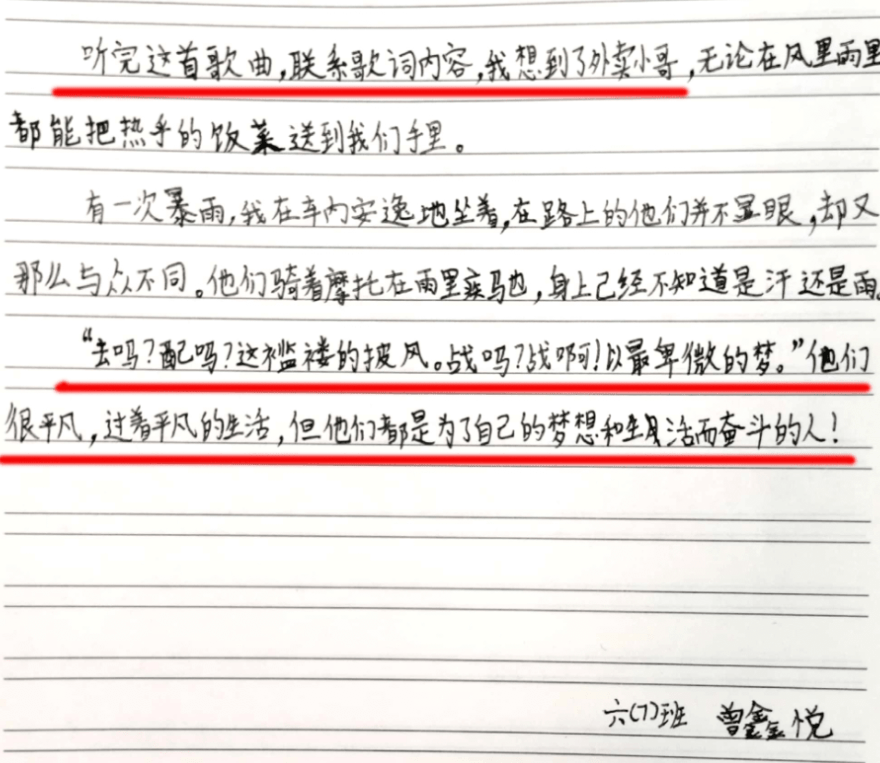 听完这首歌曲,联系歌词内容,我想到了外卖小哥,无论在风里雨里
都能把热乎的饭菜送到我们手里。
有一次暴雨,我在车内安逸地坐着,在路上的他们并不显眼,却又
那么与众不同。他们骑着摩托在雨里疾马也,身上己经不知道是汗还是雨。
“去吗?配吗?这褴褛的披风。战吗?战啊!以最卑微的梦。”他们
很平凡,过着平凡的生活,但他们都是为了自己的梦想和生活而奋斗的人!
六(7)班 曾鑫悦